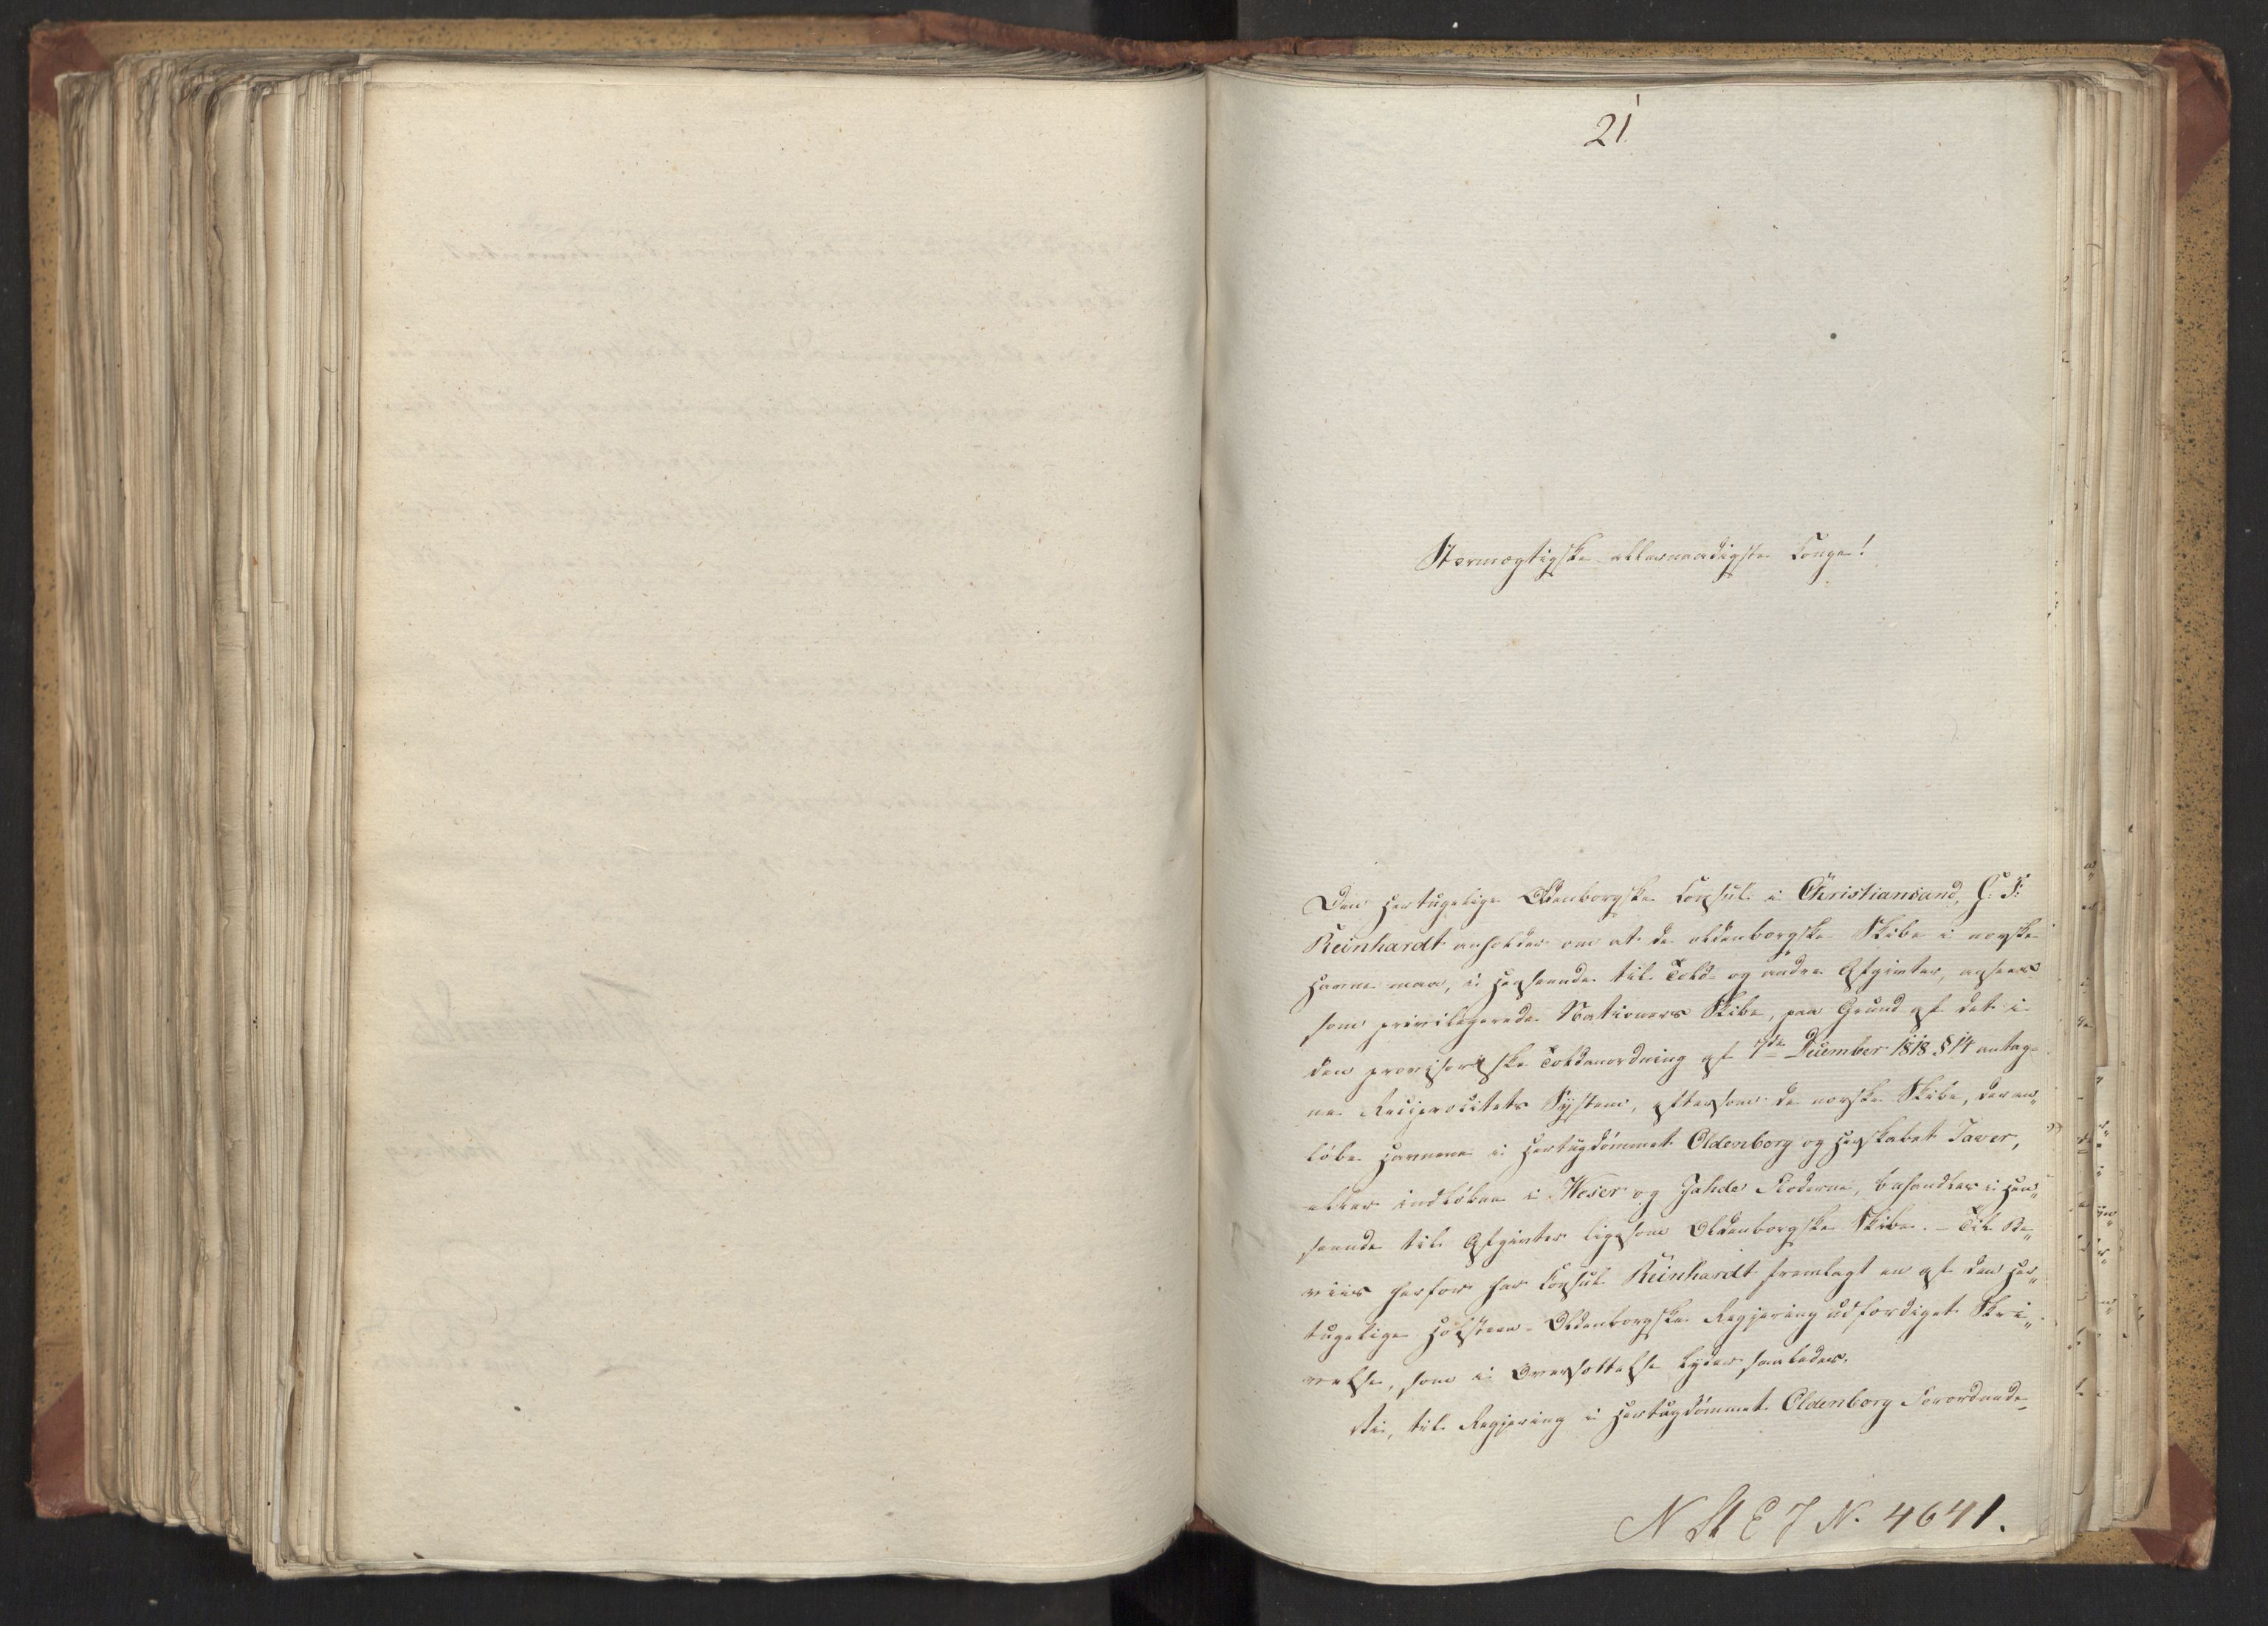 21
Stormægtigste allernaadigste Konge!
Den Hertugelige Oldenborgske Consul i Christiansand, C. F.
Reinhardt anholder om at de oldenborgske Skibe i norske
Havne maa, i Henseende til Told- og andre Afgivter, ansees
som privilegerede Nationers Skibe, paa Grund af det i
den provisoriske Toldanordning af 7de December 1818 § 14 antag-
ne Reciprocitets System, eftersom de norske Skibe, der an„
løbe Havnene i Hertugdømmet Oldenborg og Herskabet Jever,
eller indløbe i Weser og Jahde Floderne, behandles i Hen„
seende til Afgivter ligesom Oldenborgske Skibe. – Til Be„
viis herfor har Consul Reinhardt fremlagt en af den Her„
tugelige Holsteen-Oldenborgske Regjering udfærdiget Skri„
velse, som i Oversættelse lyder saaledes.
Vi, til Regjering i Hertugdømmet Oldenborg Forordnede
N St E J N. 4641.